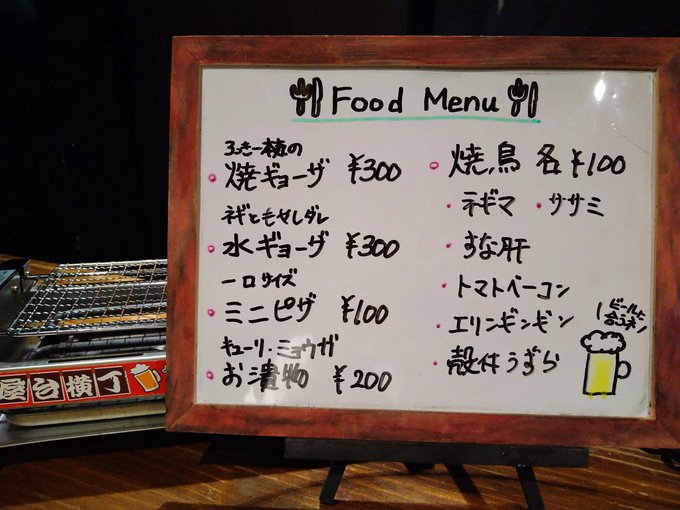 Food Menu
の
焼ギョーザ ¥300
ネギともやしダレ
水ギョーザ ¥300
一口サイズ
ミニピザ ¥100
キューリ・ミョウガ
お漬物 ¥200
焼鳥 各¥100
・ネギマ ・ササミ
・すな肝
・トマトベーコン
・エリンギンギン
・殻付うずら
ビールに
合うネン
屋台横丁